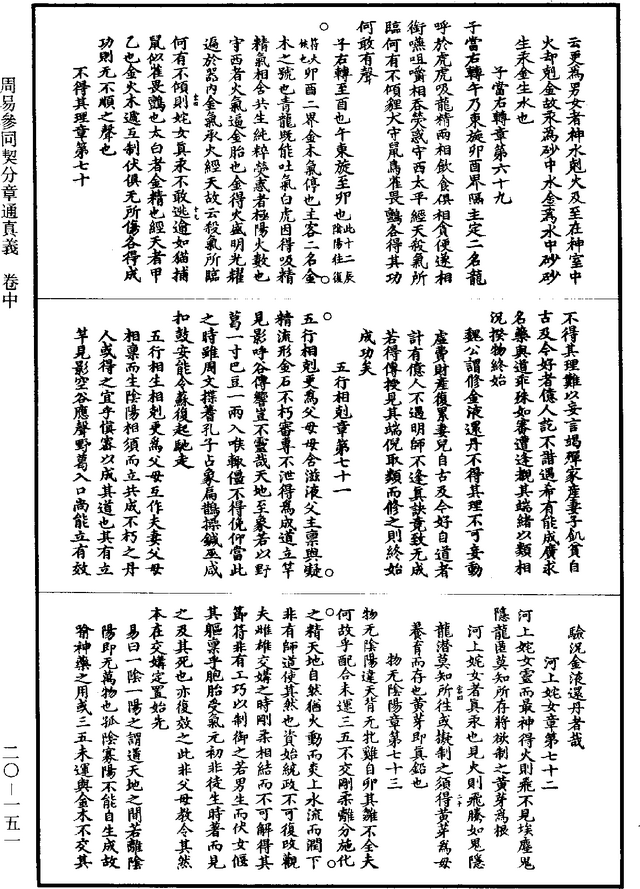 云更為男女者神水剋火及至在神室中
火却剋金故汞為砂中水金為水中砂砂
生汞金生水也
子當右轉章第六十九
子當右轉午乃東旋卯酉界隔主定二名龍
呼於虎虎吸龍精兩相飲食俱相貪便遂相
銜嚥咀嚼相吞熒惑守西太平經天殺氣所
臨何有不傾貍犬守鼠鳥雀畏鸇各得其功
何敢有聲
子右轉至酉也午東旋至卯也此十二辰陰陽往復
符火候也卯酉二界金木氣停也主客二名金
木之號也青龍既能吐氣白虎因得吸精
精氣相含共生純粹熒惑者極陽火數也
守西者火氣逼金胎也金得火盛明光耀
遍於器內金氣承火經天故云殺氣所臨
何有不傾則姹女真汞不敢逃逾如貓捕
鼠似雀畏鸇也太白者金精也經天者甲
乙也金火木遞互制伏俱无所傷各得成
功則无不順之聲也
不得其理章第七十
不得其理難以妄言竭殫家產妻子飢貧自
古及今好者億人訖不諧遇希有能成廣求
名藥與道乖殊如審遭逢覩其端緒以類相
況揆物終始
魏公謂修金液還丹不得其理不可妄動
虛費財產復累妻兒自古及今好自道者
計有億人不遇明師不逢真訣竟致无成
若得傳授見其端倪取類而修之則終始
成功矣
五行相剋章第七十一
五行相剋更為父母母含滋液父主稟與凝
精流形金石不朽審專不泄得為成道立竿
見影呼谷傳響豈不靈哉天地至象若以野
葛一寸巴豆一兩入喉輒僵不得俛仰當此
之時雖周文揲蓍孔子占象扁鵲操鍼巫咸
扣鼓安能令蘇復起馳走
五行相生相剋更為父母互作夫妻父母
相稟而生陰陽相須而立共成不朽之丹
人或得之宜乎慎審以成其道也其有立
竿見影空谷應聲野葛入口尚能立有效
驗況金液還丹者哉
河上姹女章第七十二
河上姹女靈而最神得火則飛不見埃塵鬼
隱龍匿莫知所存將欲制之黃芽為根
河上姹女者真汞也見火則飛騰如鬼隱
龍潛莫知所往或擬制之須得黃芽為母
養育而存也黃芽即真鉛也
物无陰陽章第七十三
物无陰陽違天背无牝雞自卵其雛不全夫
何故乎配合未運三五不交剛柔離分施化
之精天地自然猶火動而炎上水流而潤下
非有師道使其然也資始統政不可復改觀
夫雌雄交媾之時剛柔相結而不可解得其
節符非有工巧以制御之若男生而伏女偃
其軀稟乎胞胎受氣元初非徒生時著而見
之及其死也亦復效之此非父母教令其然
本在交媾定置始先
易曰一陰一陽之謂道天地之間若離陰
陽即无萬物也孤陰寡陽不能自生成故
喻神藥之用或三五未運與金木不交其
周易參同契分章通真義 卷中
二〇—一五一